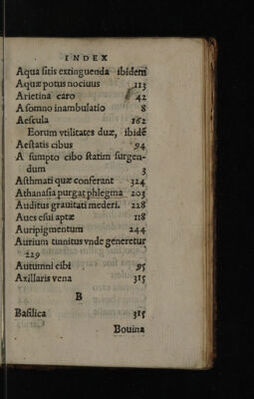 INDEX
Aqua ſitis extinguenda ibidem
Aquæ potus nociuus 113
Arietina caro 42
A ſomno inambulatio 8
Aeſcula 162
Eorum vtilitates duæ, ibidē
Aeſtatis cibus 94
A ſumpto cibo ſtatim ſurgen-
dum 3
Aſthmati quæ conferant 324
Athanaſia purgat phlegma 203
Auditus grauitati mederi. 228
Aues eſui aptæ 118
Auripigmentum 244
Aurium tinnitus vnde generetur
229
Autumni cibi 95
Axillaris vena 315
B
Baſilica 315
Bouina